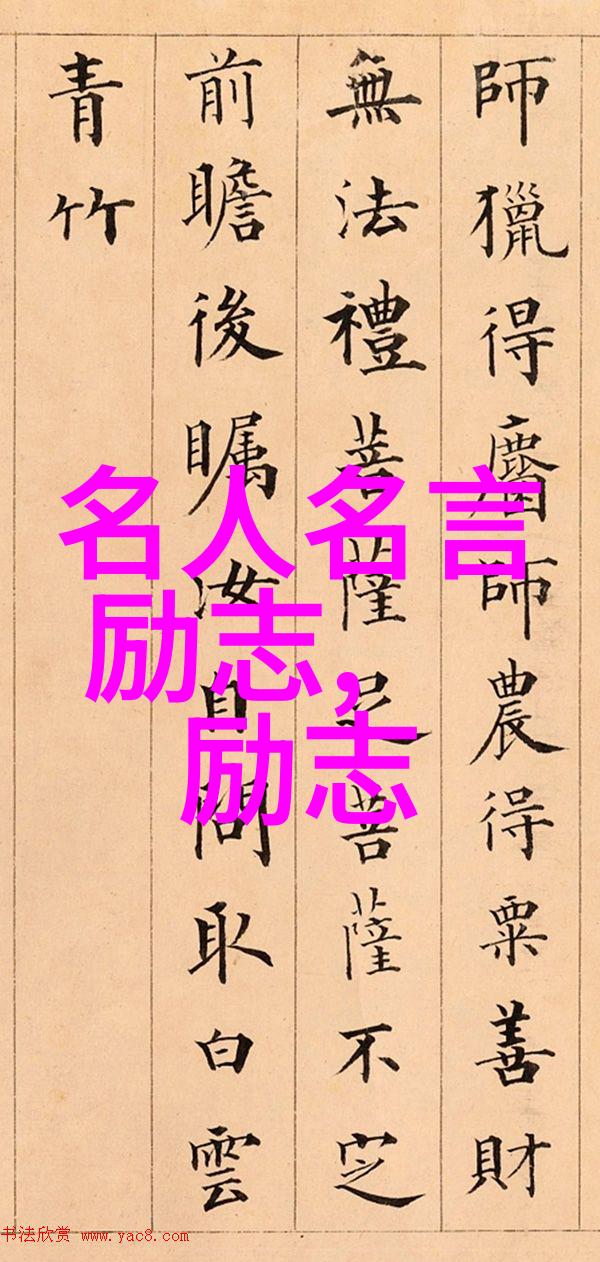 師獵得麕師農得粟善財
無法禮菩薩足菩薩不定
前瞻後矚汝自問取白雲
青竹
名人名言
励志,
励志
书法欣赏 www.yac8.com